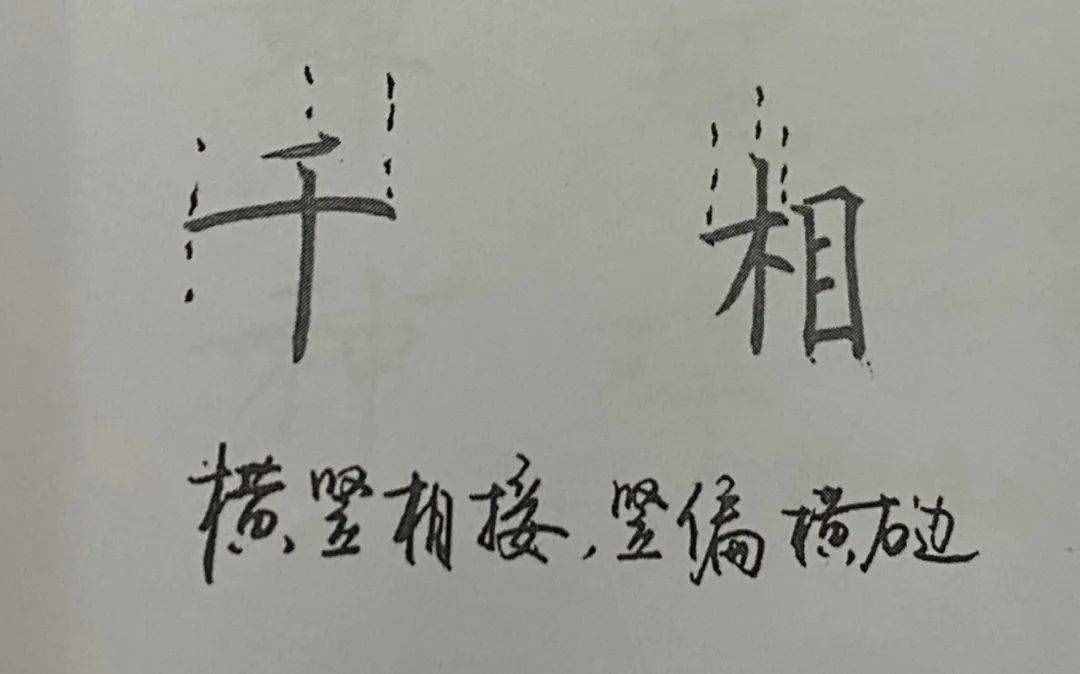 干 相
横竖相接，竖偏横右边